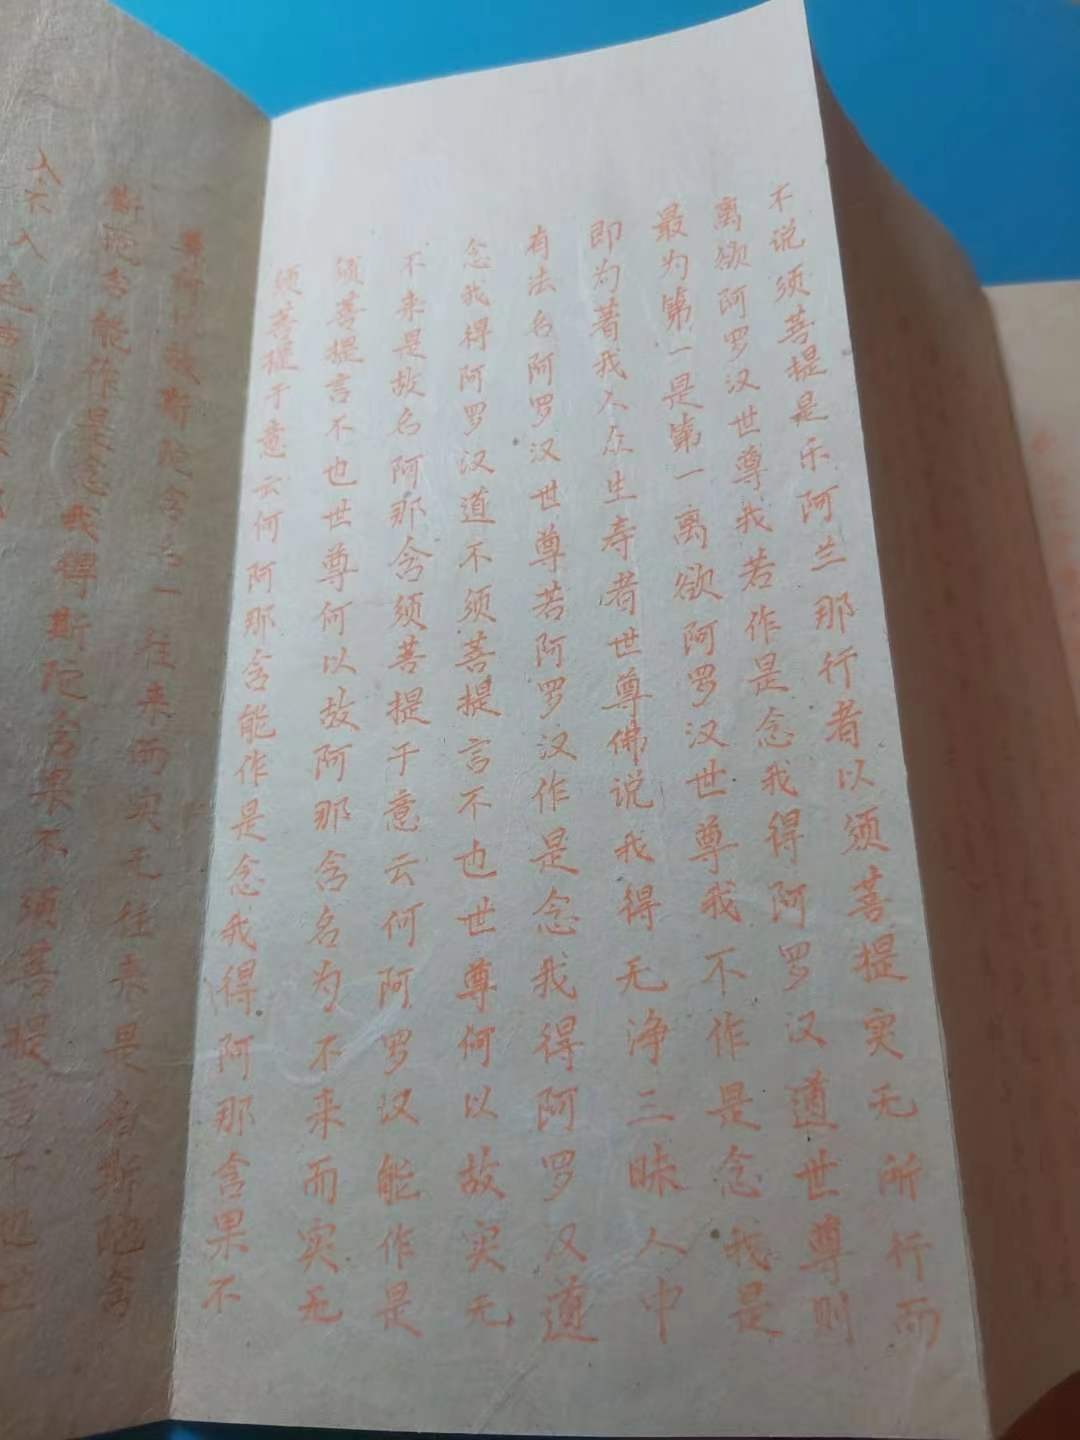 入不入色声香
斯陀含能作是念我得斯陀含果不须菩提言不也世
尊何以故斯陀含名一往来而实无往来是名斯陀含
须菩提于意云何阿那含能作是念我得阿那含果不
须菩提言不也世尊何以故阿那含名为不来而实无
不来是故名阿那含须菩提于意云何阿罗汉能作是
念我得阿罗汉道不须菩提言不也世尊何以故实无
有法名阿罗汉世尊若阿罗汉作是念我得阿罗汉道
即为著我人众生寿者世尊佛说我得无净三昧人中
最为第一是第一离欲阿罗汉世尊我不作是念我是
离欲阿罗汉世尊我若作是念我得阿罗汉道世尊则
不说须菩提是乐阿兰那行者以须菩提实无所行而